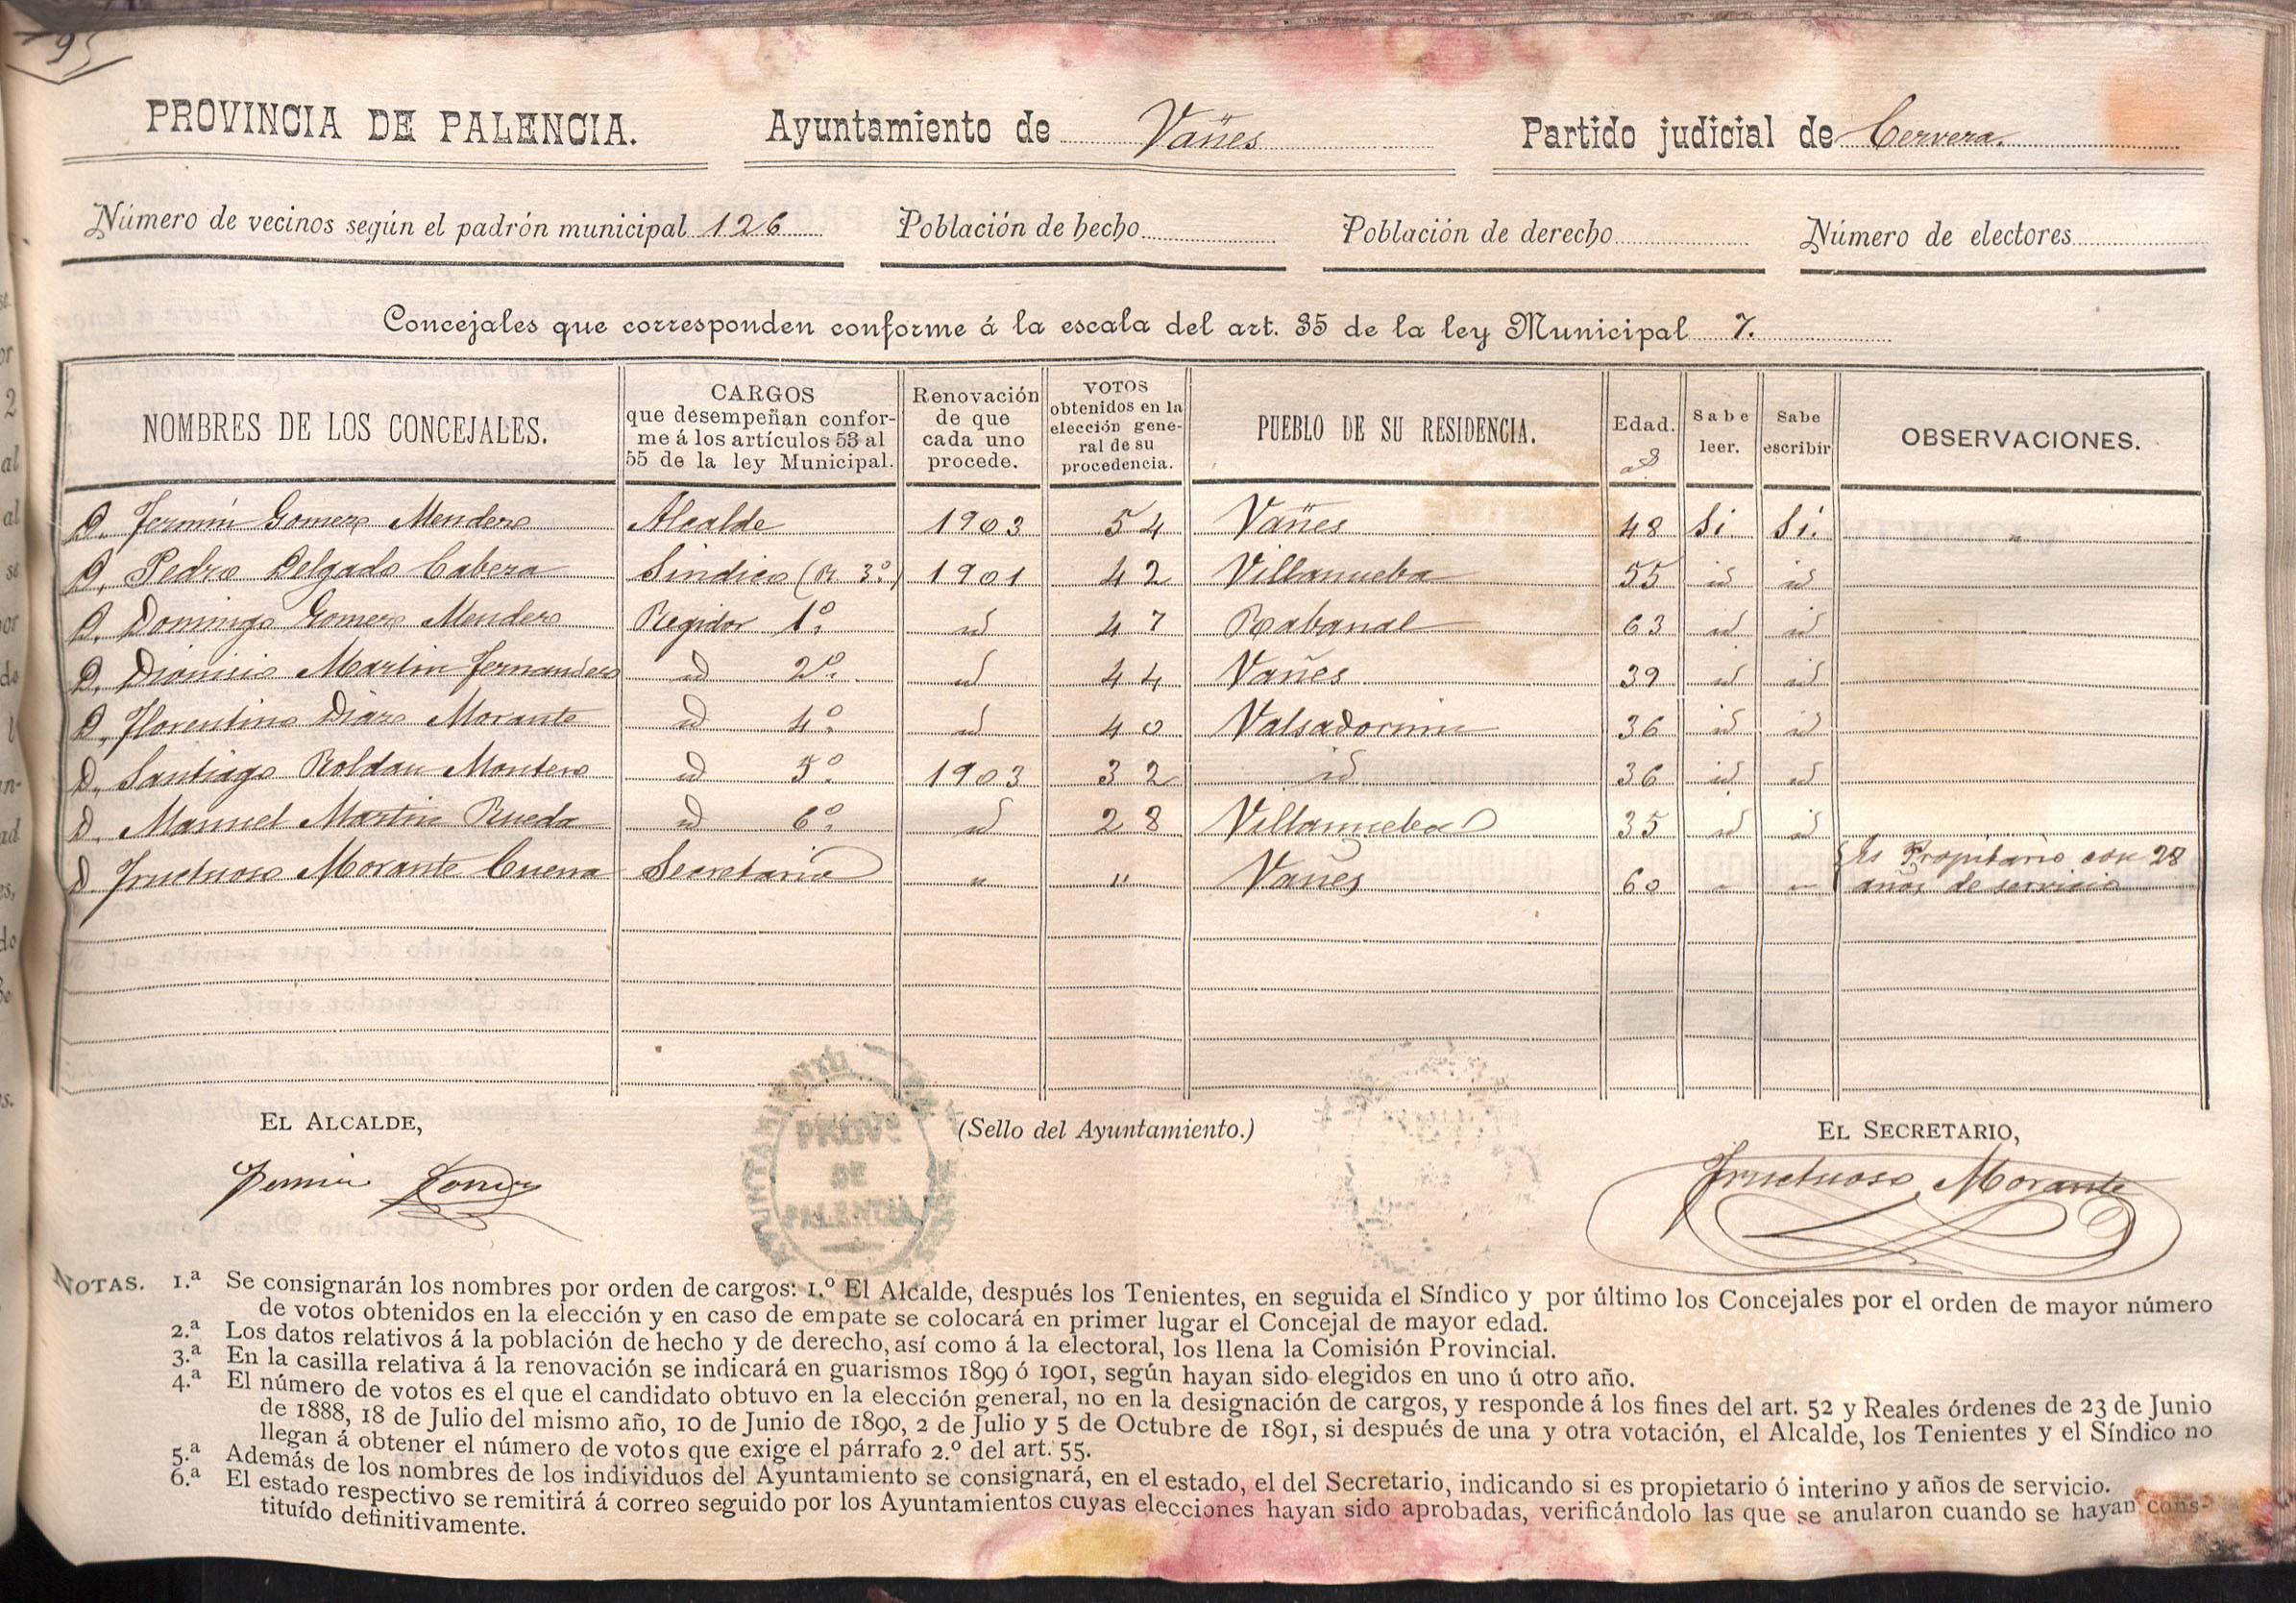 95
PROVINCIA DE PALENCIA. Ayuntamiento de Vañes Partido judicial de Cervera.
Número de vecinos según el padrón municipal 126 Población de hecho Población de derecho Número de electores
Concejales que corresponden conforme á la escala del art. 35 de la ley Municipal 7.
NOMBRES DE LOS CONCEJALES. CARGOS que desempeñan conforme á los artículos 53 al 55 de la ley Municipal. Renovación de que cada uno procede. VOTOS obtenidos en la elección general de su procedencia. PUEBLO DE SU RESIDENCIA. Edad. Sabe leer. Sabe escribir OBSERVACIONES.
D. Fermín Gomez Mendez Alcalde 1903 54 Vañes 48 Si Si. "
D. Pedro Delgado Cabeza Sindico (R 3º) 1901 42 Villanueba 55 id id
D. Domingo Gomez Mendez Regidor 1º id 47 Rabanal 63 id id
D. Dionicio Martin Fernandez id 2º id 44 Vañes 39 id id
D. Florentino Diaz Morante id 4º id 40 Valsadornin 36 id id
D. Santiago Roldan Montero id 5º 1903 32 id 36 id id
D. Manuel Martin Rueda id 6º id 28 Villanueba 35 id id
D Fructuoso Morante Cuena Secretario " " Vañes 60 " " Es Propitario con 28 años de servicio
EL ALCALDE, (Sello del Ayuntamiento.) EL SECRETARIO,
Fermin Gomez Fructuoso Morante
AYUNTAMIENTO DE
PROVª
DE
PALENCIA
NOTAS. 1.ª Se consignarán los nombres por orden de cargos: 1.º El Alcalde, después los Tenientes, en seguida el Síndico y por último los Concejales por el orden de mayor número
de votos obtenidos en la elección y en caso de empate se colocará en primer lugar el Concejal de mayor edad.
2.ª Los datos relativos á la población de hecho y de derecho, así como á la electoral, los llena la Comisión Provincial.
3.ª En la casilla relativa á la renovación se indicará en guarismos 1899 ó 1901, según hayan sido elegidos en uno ú otro año.
4.ª El número de votos es el que el candidato obtuvo en la elección general, no en la designación de cargos, y responde á los fines del art. 52 y Reales órdenes de 23 de Junio
de 1888, 18 de Julio del mismo año, 10 de Junio de 1890, 2 de Julio y 5 de Octubre de 1891, si después de una y otra votación, el Alcalde, los Tenientes y el Síndico no
llegan á obtener el número de votos que exige el párrafo 2.º del art. 55.
5.ª Además de los nombres de los individuos del Ayuntamiento se consignará, en el estado, el del Secretario, indicando si es propietario ó interino y años de servicio.
6.ª El estado respectivo se remitirá á correo seguido por los Ayuntamientos cuyas elecciones hayan sido aprobadas, verificándolo las que se anularon cuando se hayan cons-
tituído definitivamente.